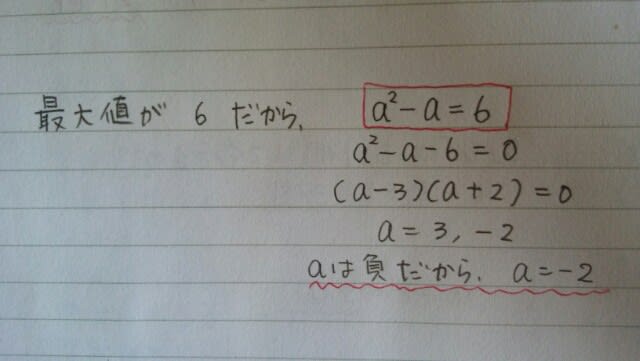 最大値が 6 だから、 a²-a=6
a²-a-6=0
(a-3)(a+2)=0
a=3, -2
aは負だから、 a=-2